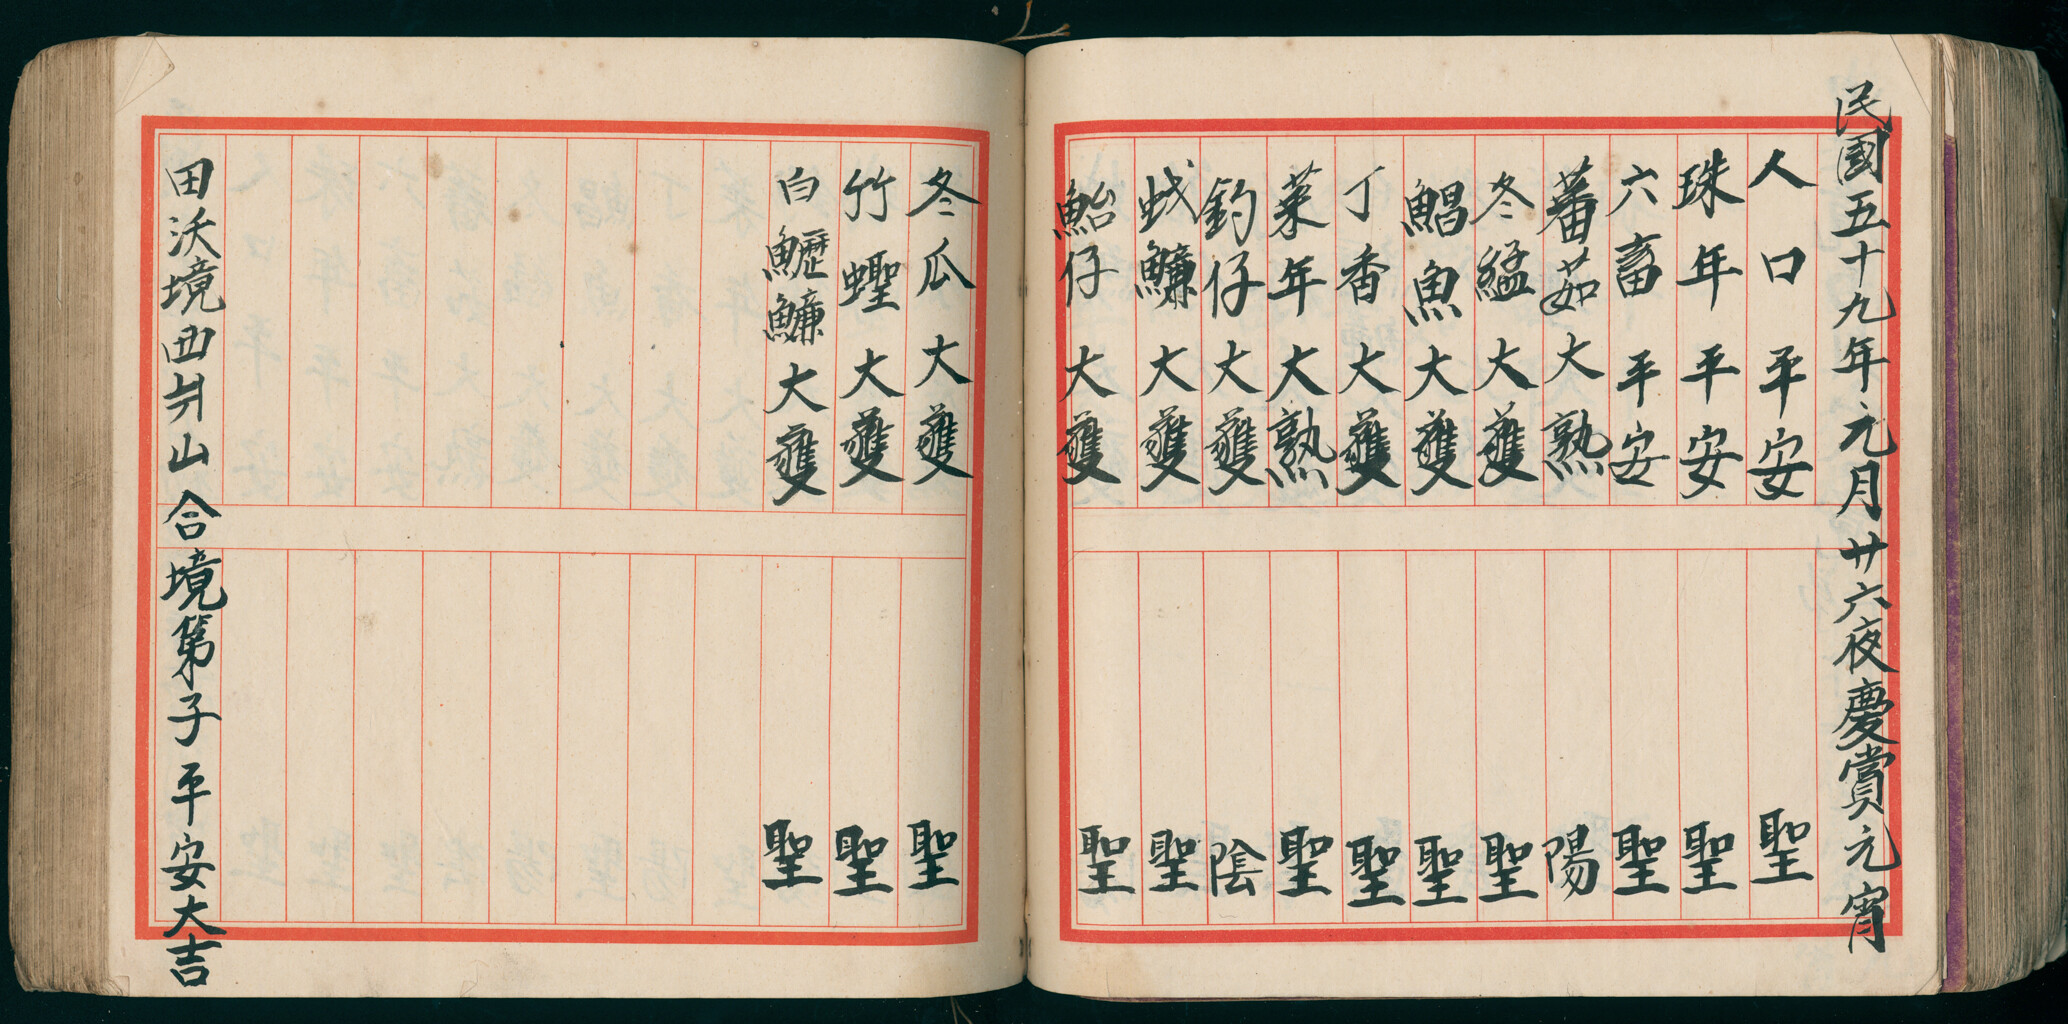 民國五十九年元月廿六夜慶賞元宵
人口平安 聖
珠年平安 聖
六畜平安 聖
蕃茹大熟 陽
冬艋大𫉬 聖
鯧魚大𫉬 聖
丁香大𫉬 聖
菜年大熟 聖
釣仔大𫉬 陰
䖳鱇大𫉬 聖
鮐仔大𫉬 聖
冬瓜大𫉬 聖
竹蟶大𫉬 聖
白鱇大𫉬 聖
田沃境 山合境第子平安大吉